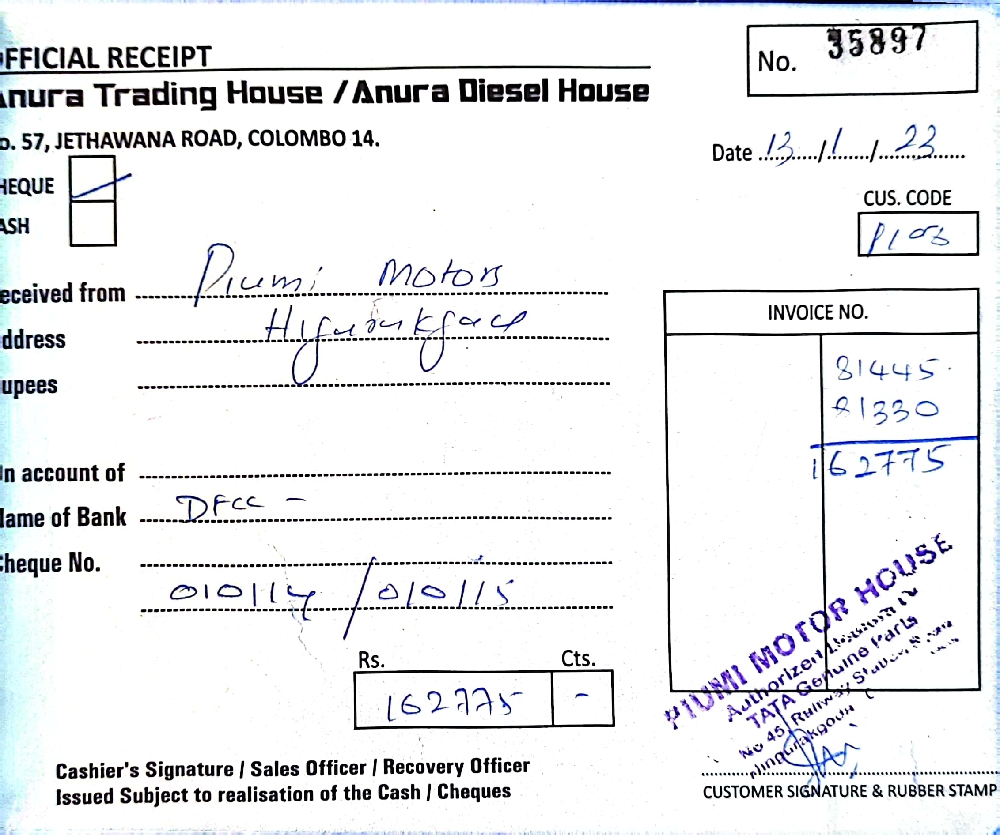 FFICIAL RECEIPT
No. 35897
nura Trading House / Anura Diesel House
o. 57, JETHAWANA ROAD, COLOMBO 14.
Date 13/1/23
HEQUE
ASH
CUS. CODE
P106
eceived from Piumi Motors
ddress
upees
INVOICE NO.
81445
81330
162775
n account of
ame of Bank DFCC -
heque No.
010114 / 010115
Rs. Cts.
162775 -
PIUMI MOTOR HOUSE
Authorized
TATA Genuine Parts
No 45, Railway Station
Cashier's Signature / Sales Officer / Recovery Officer
Issued Subject to realisation of the Cash / Cheques
CUSTOMER SIGNATURE & RUBBER STAMP